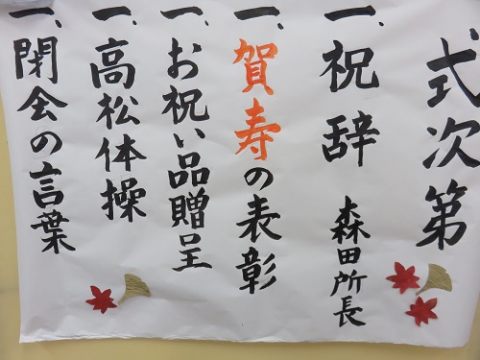 式次第
一、祝辞 森田所長
一、賀寿の表彰
一、お祝い品贈呈
一、高松体操
一、閉会の言葉